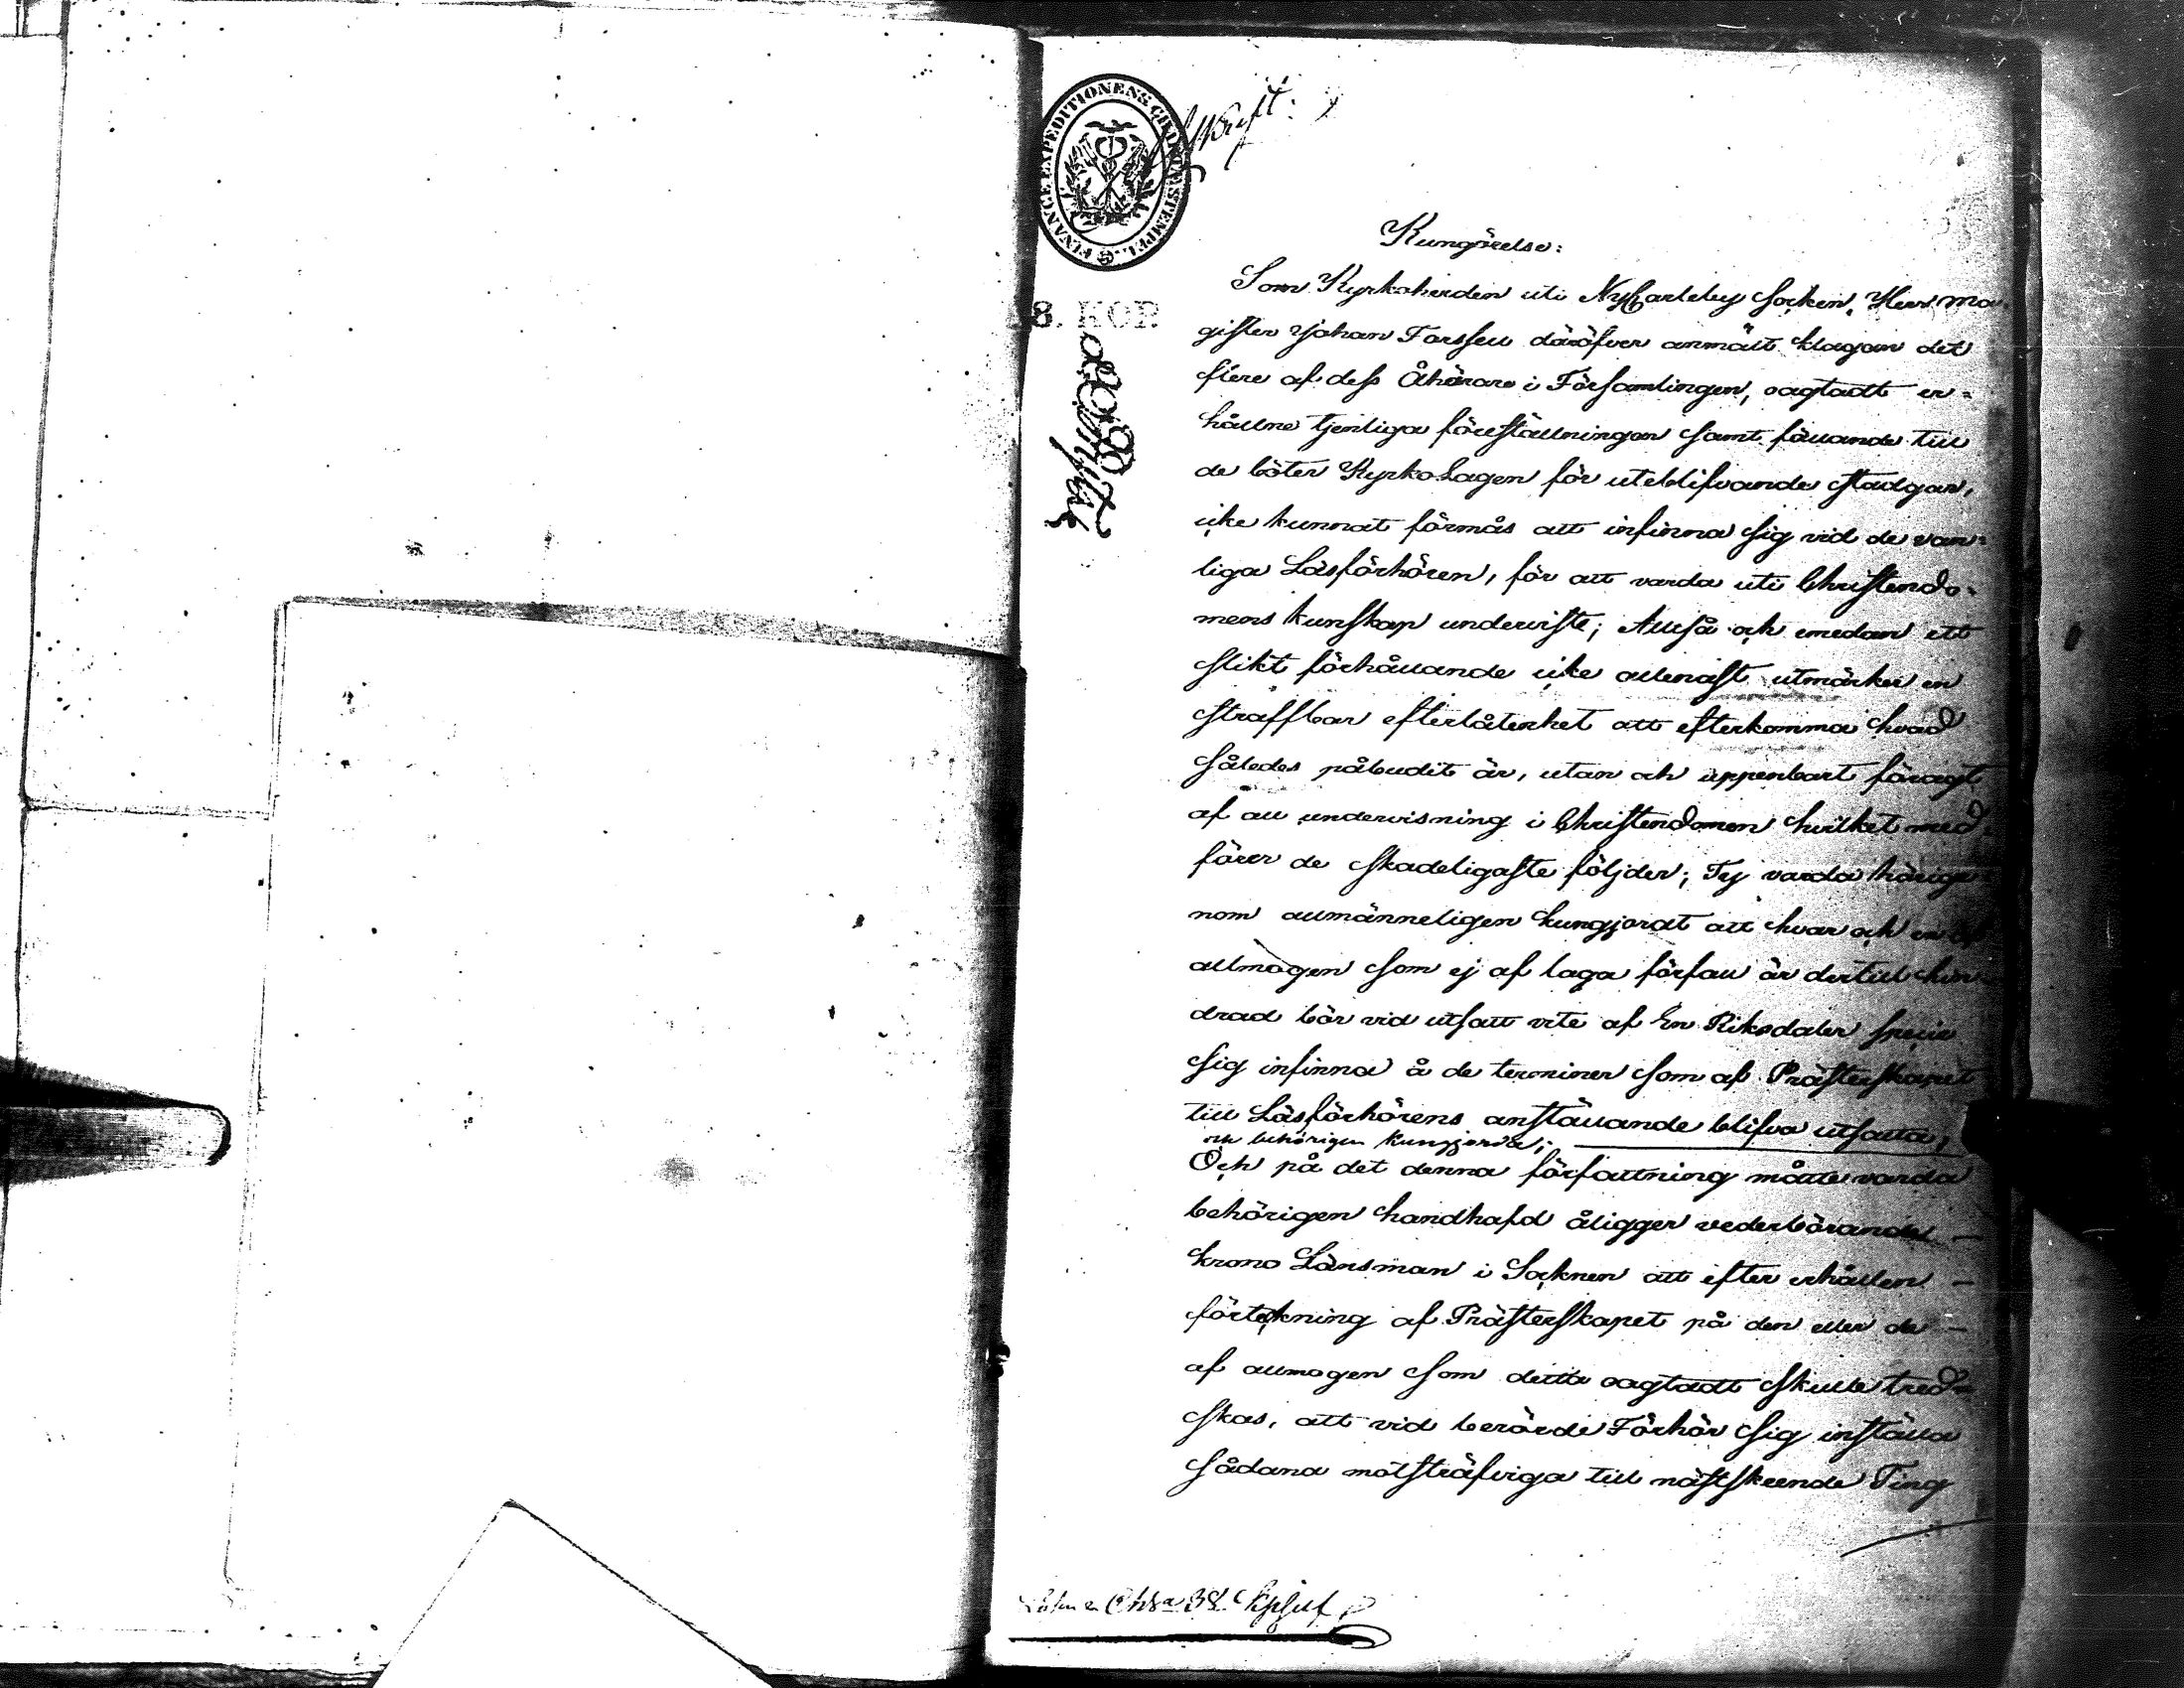 FINANCE EXPEDITIONENS
Afskrift:
8. KOP.
Kungörelse:
Som Kyrkoherden uti NyCarleby socken, Herr Ma-
gister Johan Forssell däröfver anmält klagan det
flere af dess Åhörare i Församlingen, oagtadt er=
hållne tjenliga föreställningar samt fällande till
de böter KyrkoLagen för uteblifvande stadgar,
icke kunnat förmås att infinna sig vid de van=
liga Läsförhören, för att varda uti Christendo-
mens kunskap underviste; Alltså och emedan ett
slikt förhållande icke allenast utmärker en
straffbar efterlåtenhet att efterkomma hvad
således påbudit är, utan och uppenbart föragt
af all undervisning i Christendomen hvilket med-
förer de skadeligaste följder; Ty varda härige-
nom allmänneligen kungjordt att hvar och en af
allmogen som ej af laga förfall är dertill hin-
drad bör vid utsatt vite af En Riksdaler specie
sig infinna å de terminer som af Prästerskapet
till Läsförhörens anställande blifva utsatta,
och behörigen kungjorda;
Och på det denna författning måtte varda
behörigen handhafd åligger vederbörande –
krono Länsman i Socknen att efter erhållen –
förtekning af Prästerskapet på den eller de –
af allmogen som detta oagtadt skulle tred=
skas, att vid berörde Förhör sig inställa
sådana motsträfviga till nästskeende Ting